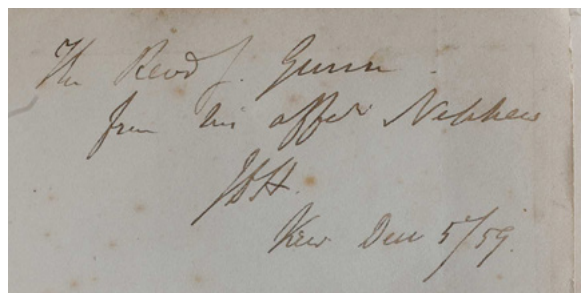 The Revd J. Gunn.
from his affect Nephew
JDH.
Kew Dec 5/59.